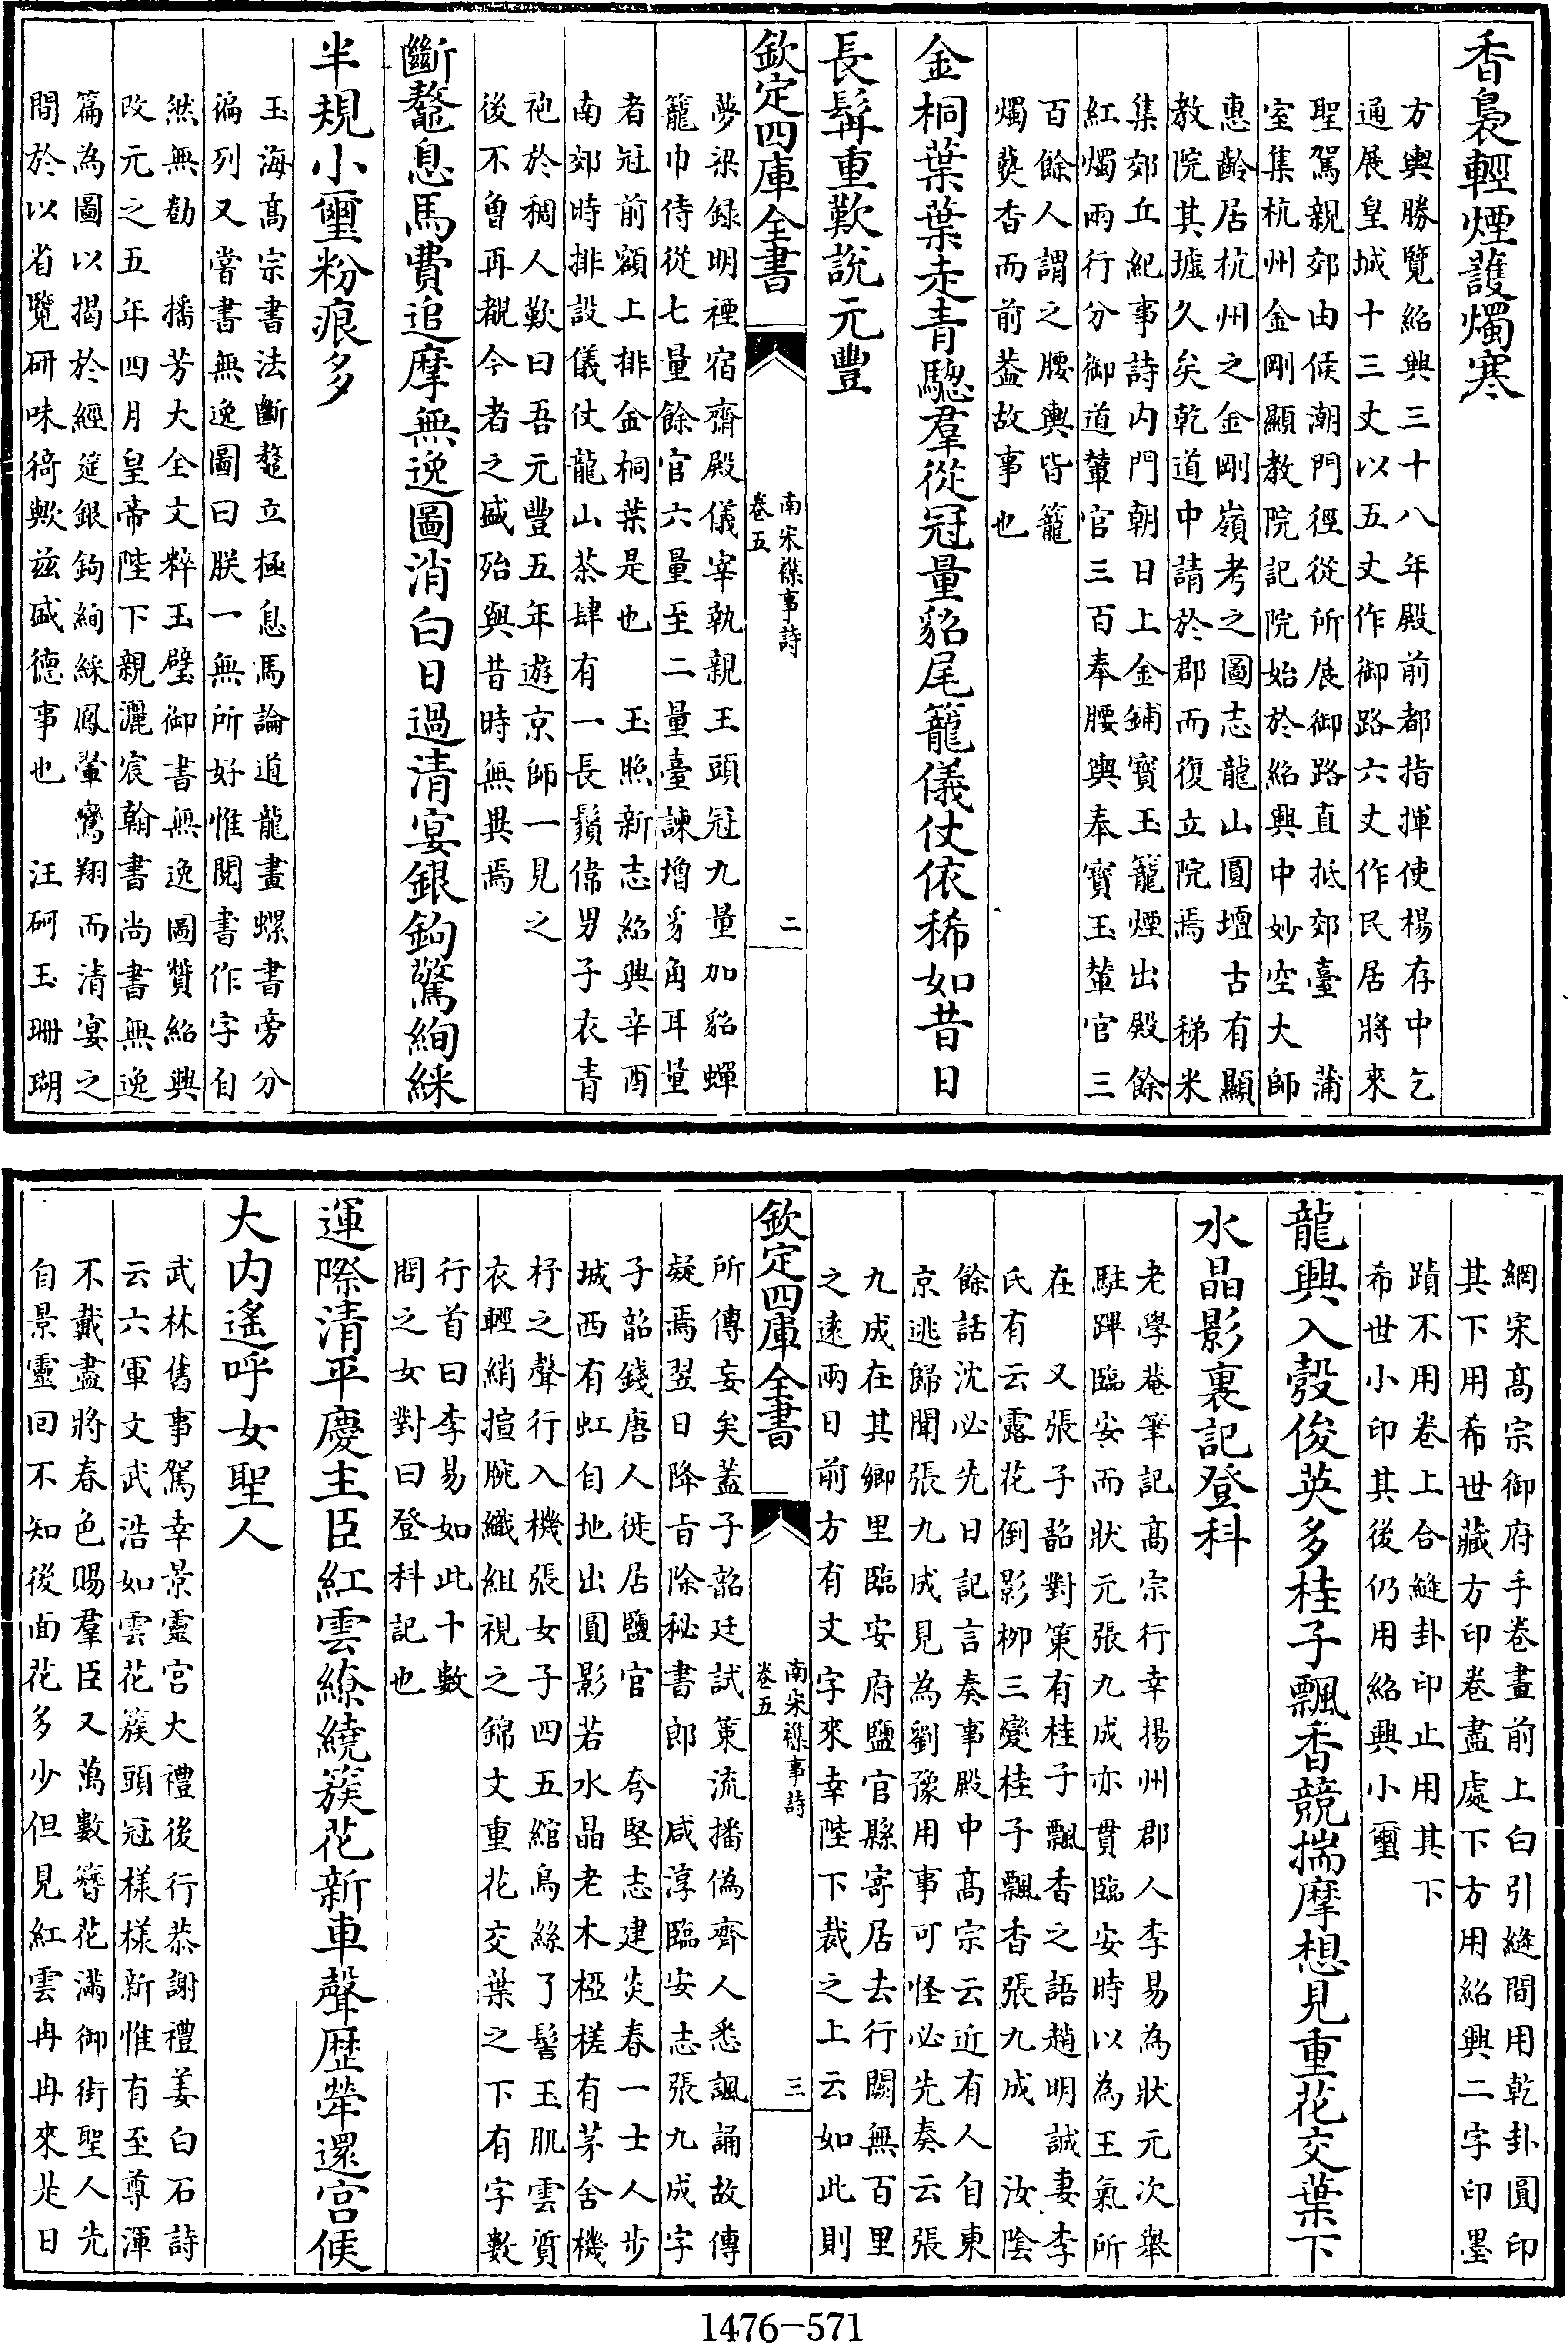 香裊輕煙護燭寒
方輿勝覽紹興三十八年殿前都指揮使楊存中乞
通展皇城十三丈以五丈作御路六丈作民居將來
聖駕親郊由候潮門徑從所展御路直抵郊臺　蒲
室集杭州金剛顯教院記院始於紹興中妙空大師
惠齡居杭州之金剛嶺考之圖志龍山圓壇古有顯
教院其墟久矣乾道中請於郡而復立院焉　稊米
集郊丘紀事詩内門朝日上金鋪寶玉籠煙出殿餘
紅燭兩行分御道輦官三百奉腰輿奉寶玉輦官三
百餘人謂之腰輿皆籠
燭爇香而前葢故事也
金桐葉葉走青驄羣從冠量貂尾籠儀仗依稀如昔日
長髯重歎說元豐
欽定四庫全書
南宋襍事詩
卷五
二
夢梁録明禋宿齋殿儀宰執親王頭冠九量加貂蟬
籠巾侍從七量餘官六量至二量臺諫增豸角耳量
者冠前額上排金桐葉是也　玉照新志紹興辛酉
南郊時排設儀仗龍山茶肆有一長鬚偉男子衣青
袍於稠人歎曰吾元豐五年遊京師一見之
後不曽再覩今者之盛殆與昔時無異焉
斷鼇息馬費追摩無逸圖消白日過清宴銀鉤驚絢綵
半規小璽粉痕多
玉海髙宗書法斷鼇立極息馬論道龍畫螺書旁分
徧列又嘗書無逸圖曰朕一無所好惟閱書作字自
然無勌　播芳大全文粹玉璧御書無逸圖贊紹興
改元之五年四月皇帝陛下親灑宸翰書尚書無逸
篇為圖以揭於經筵銀鉤絢綵鳳翥鸞翔而清宴之
間於以省覽研味猗歟兹盛德事也　汪砢玉珊瑚
網宋髙宗御府手卷畫前上白引縫間用乾卦圓印
其下用希世藏方印卷盡處下方用紹興二字印墨
蹟不用卷上合縫卦印止用其下
希世小印其後仍用紹興小璽
龍興入彀俊英多桂子飄香競揣摩想見重花交葉下
水晶影裏記登科
老學菴筆記髙宗行幸揚州郡人李易為狀元次舉
駐蹕臨安而狀元張九成亦貫臨安時以為王氣所
在　又張子韶對策有桂子飄香之語趙明誠妻李
氏有云露花倒影柳三變桂子飄香張九成　汝陰
餘話沈必先日記言奏事殿中髙宗云近有人自東
京逃歸聞張九成見為劉豫用事可怪必先奏云張
九成在其鄉里臨安府鹽官縣寄居去行闕無百里
之遠兩日前方有文字來幸陛下裁之上云如此則
欽定四庫全書
南宋襍事詩
卷五
三
所傳妄矣葢子韶廷試策流播偽齊人悉諷誦故傳
疑焉翌日降旨除秘書郎　咸淳臨安志張九成字
子韶錢唐人徙居鹽官　夸堅志建炎春一士人步
城西有虹自地出圓影若水晶老木椏槎有茅舍機
杼之聲行入機張女子四五綰烏絲了髻玉肌雲質
衣輕綃揎腕織組視之錦文重花交葉之下有字數
行首曰李易如此十數
問之女對曰登科記也
運際清平慶主臣紅雲繚繞簇花新車聲歴犖還宮候
大内遙呼女聖人
武林舊事駕幸景靈宮大禮後行恭謝禮姜白石詩
云六軍文武浩如雲花簇頭冠樣樣新惟有至尊渾
不戴盡將春色賜羣臣又萬數簪花滿御街聖人先
自景靈回不知後面花多少但見紅雲冉冉來是日
1476-571